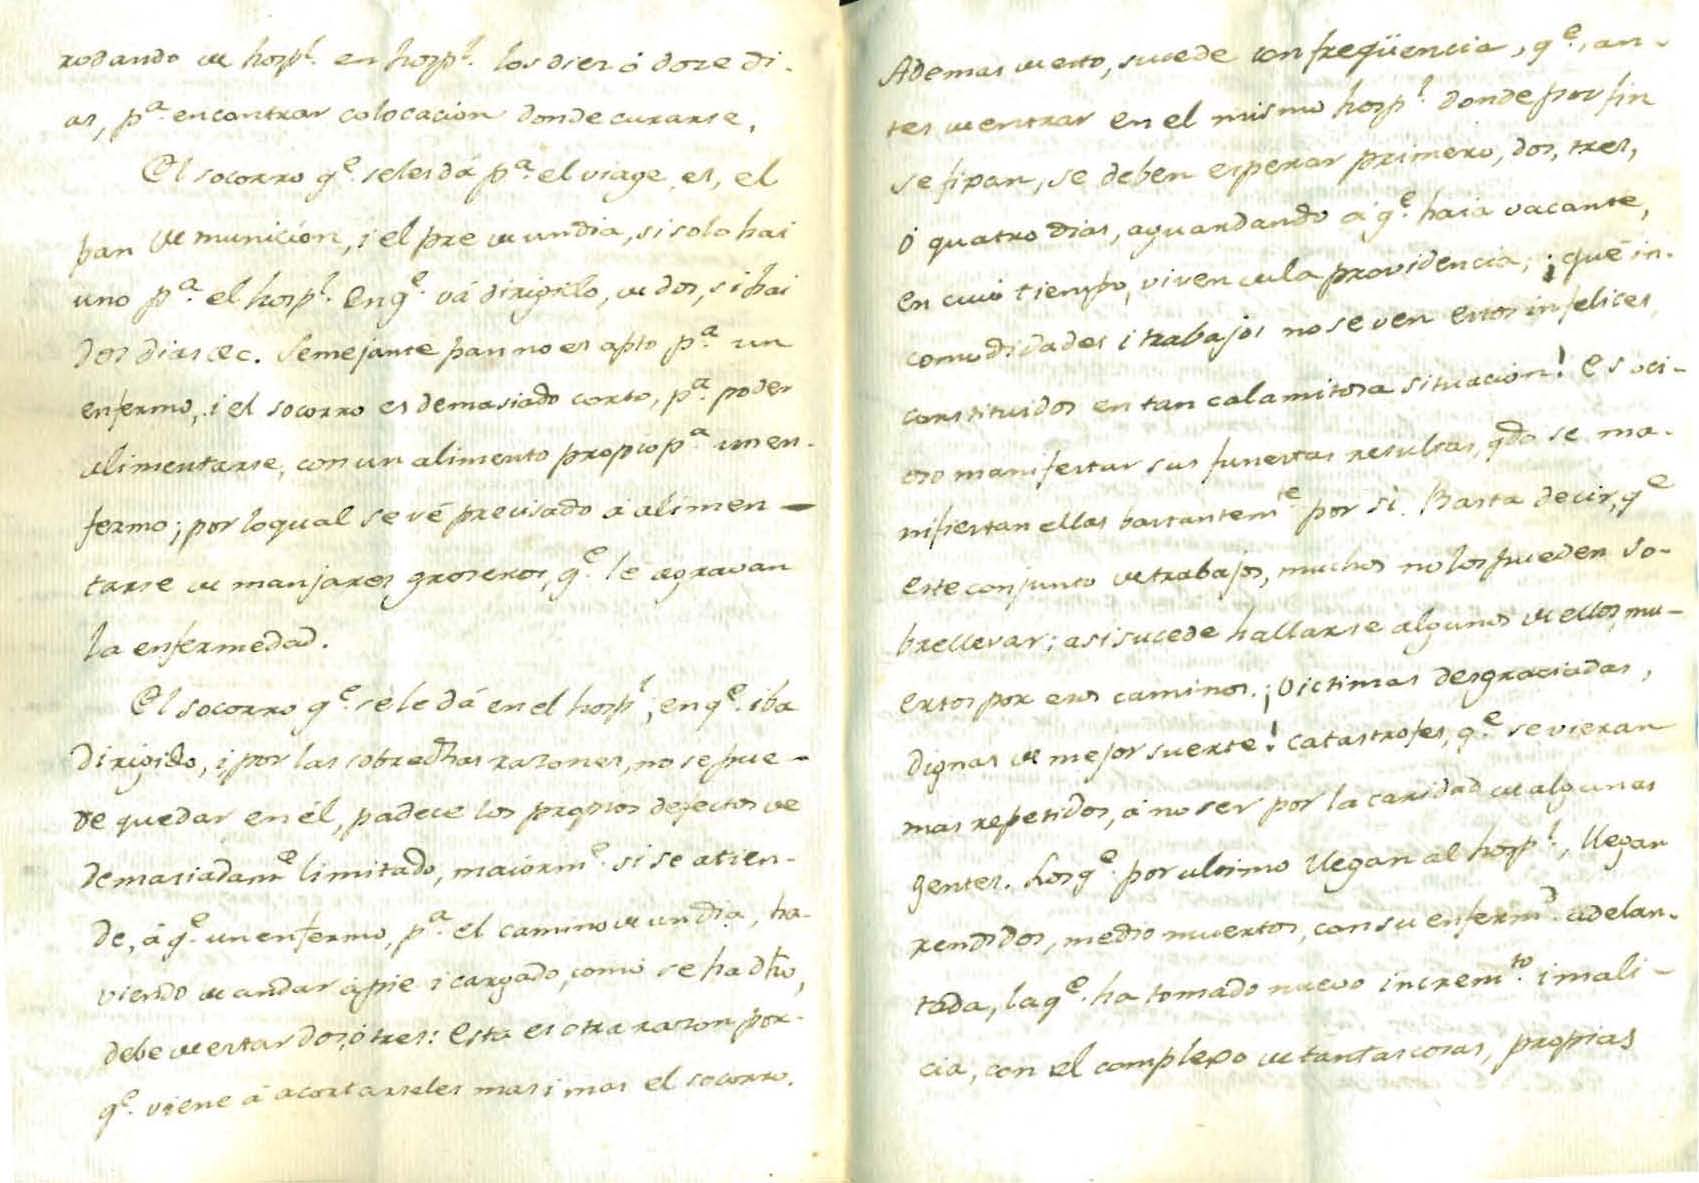 rodando de hosp.l en hosp.l los dies ó doze di-
as, p.a encontrar colocacion donde curarse.
El socorro q.e se les dá p.a el viage es, el
pan de municion, i el pre de un dia, si solo hai
uno p.a el hosp.l en q.e vá dirigido, de dos, si hai
dos dias &c. Semejante pan no es apto p.a un
enfermo, i el socorro es demasiado corto, p.a poder
alimentarse, con un alimento propio p.a un en-
fermo; por lo qual se vé precisado á alimen-
tarse de manjares groseros, q.e le agravan
la enfermedad.
El socorro q.e se le dá en el hosp.l, en q.e iba
dirigido, i, por las sobredhas razones, no se pue-
de quedar en él, padece los propios defectos de
demasiadam.e limitado, maiorm.e si se atien-
de, á q.e un enfermo, p.a el camino de un dia, ha-
viendo de andar á pie i cargado, como se ha dho,
debe de estar dos, ó tres: esta es otra razon por-
q.e viene á acortarseles mas i mas el socorro.
Ademas de esto, sucede con freqüencia, q.e, an-
tes de entrar en el mismo hosp.l donde por fin
se fixan, se deben esperar primero, dos, tres,
ó quatro dias, aguardando á q.e haia vacante,
en cuio tiempo, viven de la providencia, ¡que in-
comodidades i trabajos no se ven estos infelices
constituidos en tan calamitosa situacion! Es oci-
oso manifestar sus funestas resultas, qdo se ma-
nifiestan ellas bastantem.e por si. Basta decir, q.e
este conjunto de trabajos, muchos no los pueden so-
brellevar; asi sucede hallarse algunos de ellos mu-
ertos por esos caminos. ¡Victimas desgraciadas,
dignas de mejor suerte! catastrofes, q.e se vieran
mas repetidos, á no ser por la caridad de algunas
gentes. Los q.e por ultimo llegan al hosp.l, llegan
rendidos, medio muertos, con su enferm.d adelan-
tada, la q.e ha tomado nuevo increm.to i mali-
cia, con el complexo de tantas cosas, propias